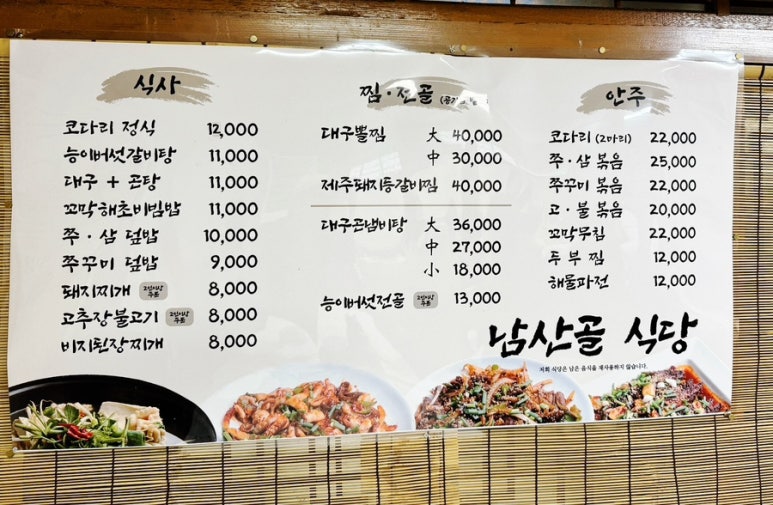 식사
코다리 정식 12,000
능이버섯갈비탕 11,000
대구 + 곤탕 11,000
꼬막해초비빔밥 11,000
쭈·삼 덮밥 10,000
쭈꾸미 덮밥 9,000
돼지찌개 2인이상 주문 8,000
고추장불고기 2인이상 주문 8,000
비지된장찌개 8,000
찜·전골
대구뽈찜 大 40,000
中 30,000
제주돼지등갈비찜 40,000
대구곤냄비탕 大 36,000
中 27,000
小 18,000
능이버섯전골 2인이상 주문 13,000
안주
코다리 (2마리) 22,000
쭈·삼 볶음 25,000
쭈꾸미 볶음 22,000
고·불 볶음 20,000
꼬막무침 22,000
두부찜 12,000
해물파전 12,000
남산골 식당
저희 식당은 남은 음식을 재사용하지 않습니다.